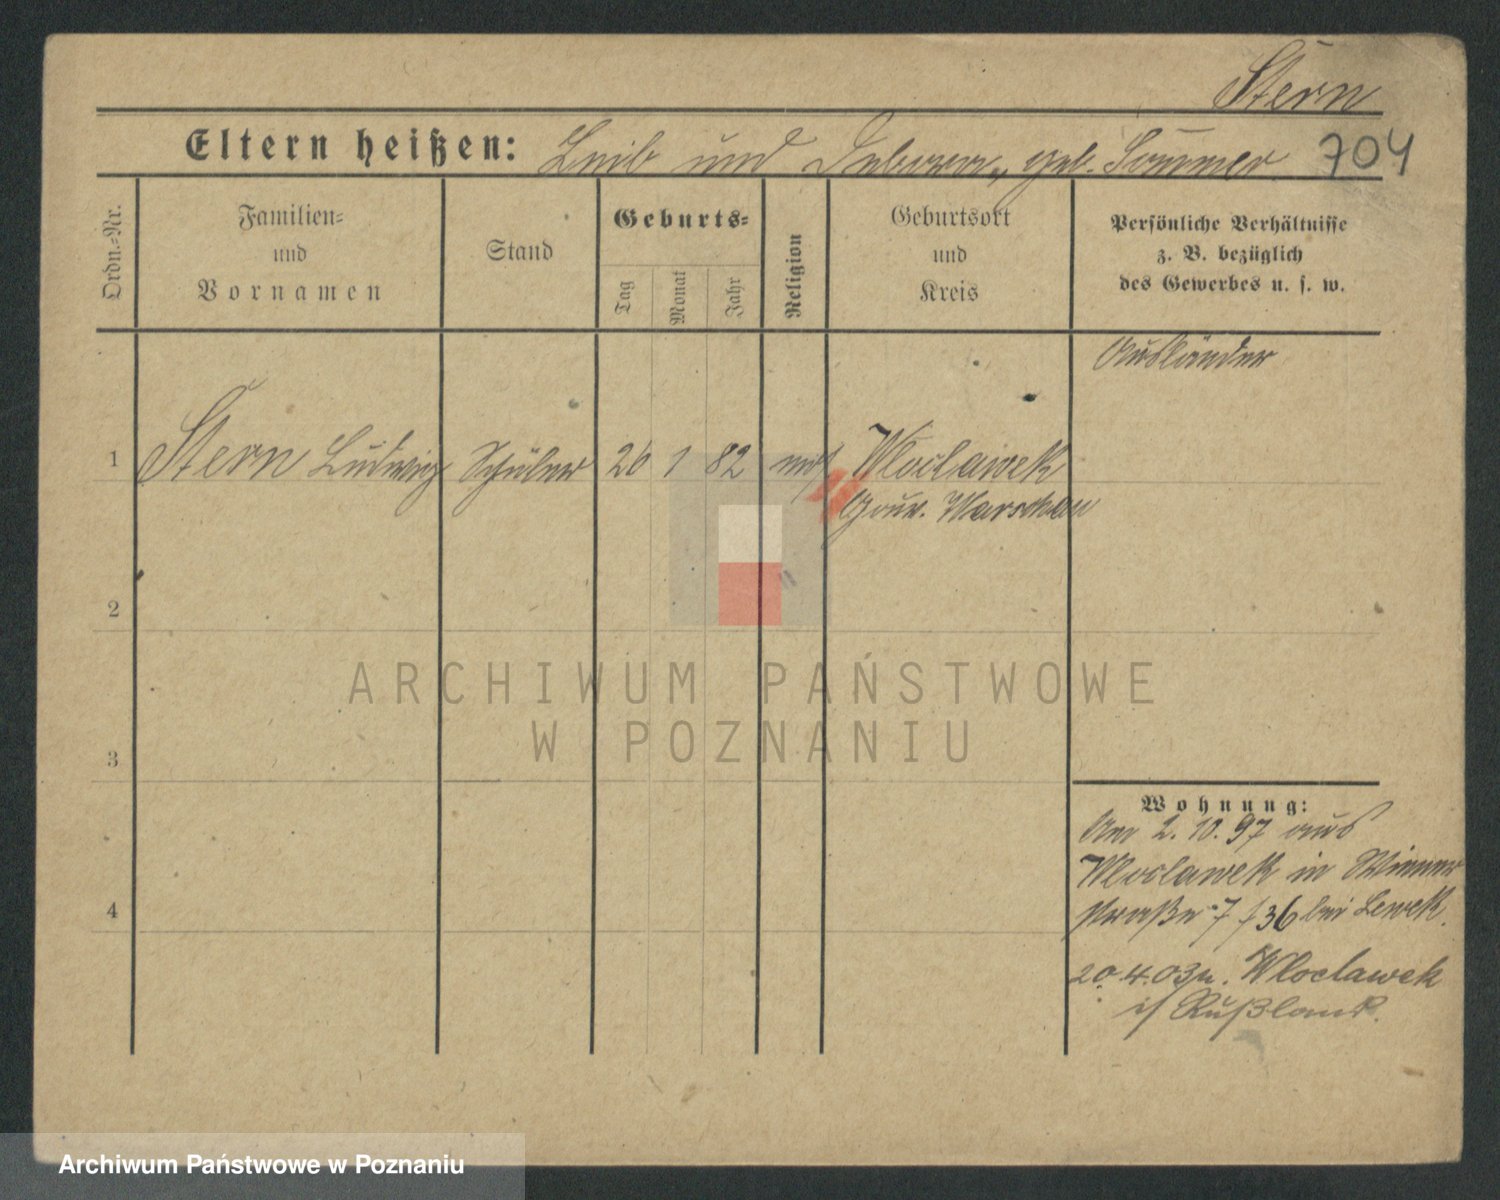 Stern
Eltern heißen: Leib und Debora, geb. Sommer 704
Ordn.-Nr.
Familien-
und
Vornamen
Stand
Geburts-
Tag
Monat
Jahr
Religion
Geburtsort
und
Kreis
Persönliche Verhältnisse
z. B. bezüglich
des Gewerbes u. s. w.
Ausländer
1 Stern Ludwig Schüler 26 1 82 mos Wloclawek
Gouv. Warschau
2
3
4
ARCHIWUM PAŃSTWOWE
W POZNANIU
Wohnung:
Am 2.10.97 aus
Wloclawek in Wiener
straße 7 / 36 bei Lewek.
20.4.03 n. Wloclawek
i/ Rußland.
Archiwum Państwowe w Poznaniu